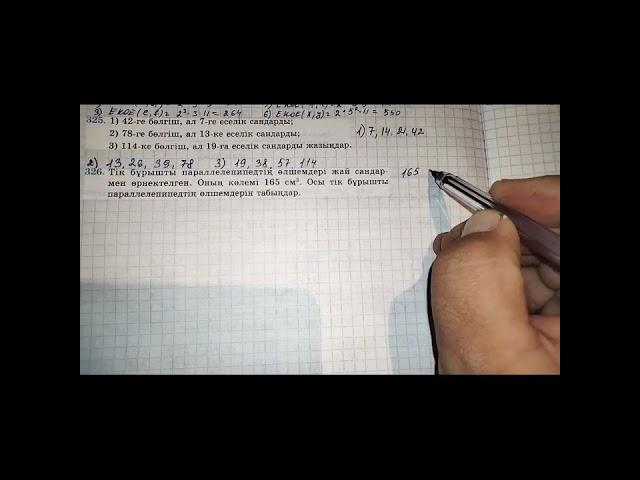 в) ЕКОЕ(c,b)= 2³·3·11=264 б) ЕКОЕ(x,y)= 2·5²·11=550
325. 1) 42-ге бөлгіш, ал 7-ге еселік сандарды;
1) 7, 14, 21, 42
2) 78-ге бөлгіш, ал 13-ке еселік сандарды;
3) 114-ке бөлгіш, ал 19-ға еселік сандарды жазыңдар.
2) 13, 26, 39, 78 3) 19, 38, 57 114
326. Тік бұрышты параллелепипедтің өлшемдері жай сандар-
165
мен өрнектелген. Оның көлемі 165 см³. Осы тік бұрышты
параллелепипедтің өлшемдерін табыңдар.